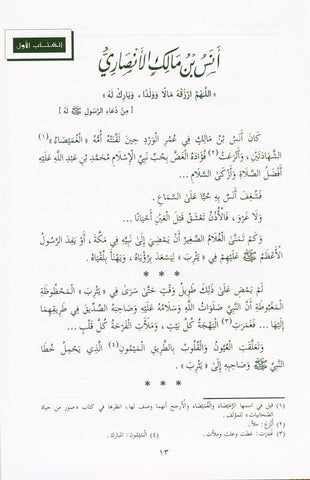 الكتاب الأول
أَنَسُ بْنُ مَالِكٍ الأَنْصَارِيُّ
« اللَّهُمَّ ارْزُقْهُ مَالًا وَوَلَدًا ، وَبَارِكْ لَهُ »
[ مِنْ دُعَاءِ الرَّسُولِ ﷺ لَهُ ]
كَانَ أَنَسُ بْنُ مَالِكٍ فِي عُمْرِ الْوَرْدِ حِينَ لَقَّنَتْهُ أُمُّهُ « الْغُمَيْصَاءُ »(١)
الشَّهَادَتَيْنِ ، وَأَتْرَعَتْ(٢) فُؤَادَهُ الْغَضَّ بِحُبِّ نَبِيِّ الإِسْلَامِ مُحَمَّدِ بْنِ عَبْدِ اللَّهِ عَلَيْهِ
أَفْضَلُ الصَّلَاةِ وَأَزْكَى السَّلَامِ ...
فَشُغِفَ أَنَسٌ بِهِ حُبًّا عَلَى السَّمَاعِ .
وَلَا غَرْوَ ، فَالأُذُنُ تَعْشَقُ قَبْلَ الْعَيْنِ أَحْيَانًا ...
وَكَمْ تَمَنَّى الْغُلَامُ الصَّغِيرُ أَنْ يَمْضِيَ إِلَى نَبِيِّهِ فِي مَكَّةَ ، أَوْ يَفِدَ الرَّسُولُ
الأَعْظَمُ ﷺ عَلَيْهِمْ فِي « يَثْرِبَ » لِيَسْعَدَ بِرُؤْيَاهُ ، وَيَهْنَأَ بِلُقْيَاهُ .
* * *
لَمْ يَمْضِ عَلَى ذَلِكَ طَوِيلُ وَقْتٍ حَتَّى سَرَى فِي « يَثْرِبَ » الْمَحْظُوظَةِ
الْمَغْبُوطَةِ أَنَّ النَّبِيَّ صَلَوَاتُ اللَّهِ وَسَلَامُهُ عَلَيْهِ وَصَاحِبَهُ الصِّدِّيقَ فِي طَرِيقِهِمَا
إِلَيْهَا ... فَغَمَرَتِ(٣) الْبَهْجَةُ كُلَّ بَيْتٍ ، وَمَلَأَتِ الْفَرْحَةُ كُلَّ قَلْبٍ ...
وَتَعَلَّقَتِ الْعُيُونُ وَالْقُلُوبُ بِالطَّرِيقِ الْمَيْمُونِ(٤) الَّذِي يَحْمِلُ خُطَا
النَّبِيِّ ﷺ وَصَاحِبِهِ إِلَى « يَثْرِبَ » .
* * *
(١) قيل في اسمها الرُّمَيْصَاء والْغُمَيْصَاء والأرجح أنهما وصف لها، انظرها في كتاب «صور من حياة
الصحابيات» للمؤلف.
(٢) أَتْرَعَ: ملأ.
(٣) غَمَرَت: غطت وعلت وملأت. (٤) الْمَيْمُون: المبارك.
١٣